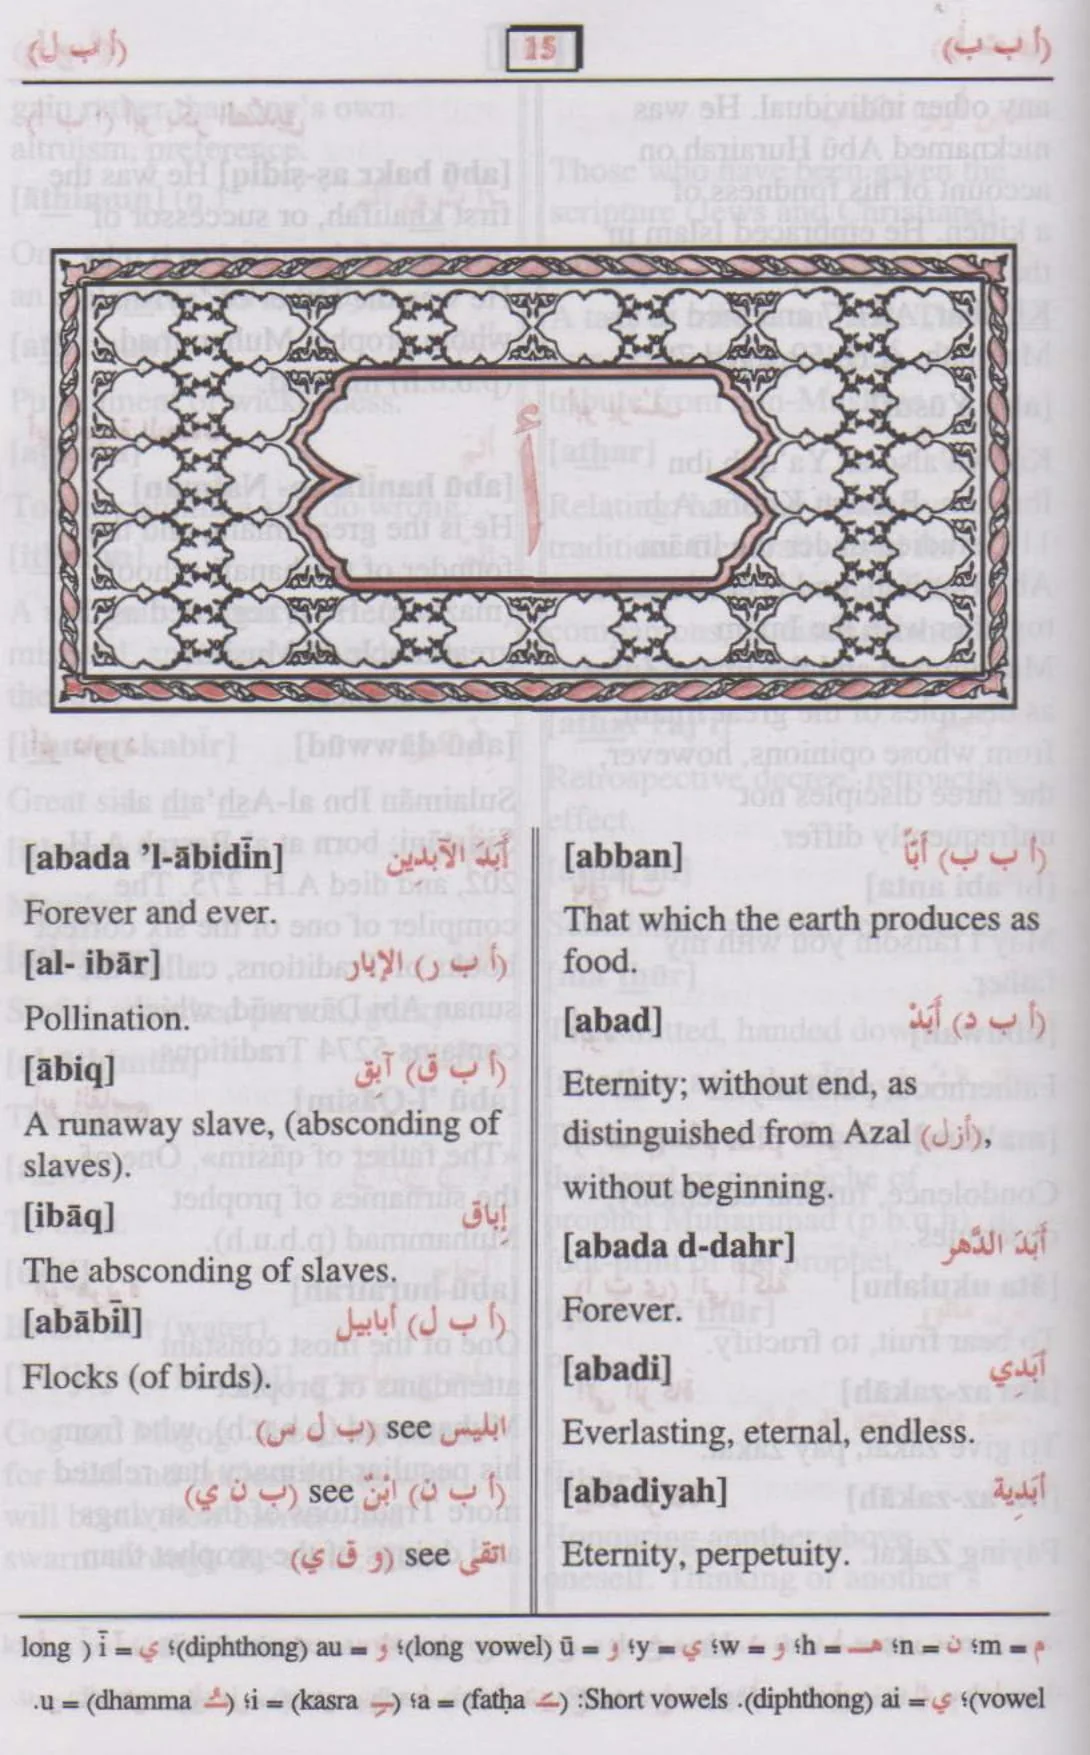 (أ ب ب)
15
(أ ب ل)
أ
(أ ب ب) أَبًّا [abban]
That which the earth produces as
food.
(أ ب د) أَبَدْ [abad]
Eternity; without end, as
distinguished from Azal (أزل),
without beginning.
أَبَدَ الدَّهر [abada d-dahr]
Forever.
أَبَدي [abadi]
Everlasting, eternal, endless.
أَبَدِية [abadiyah]
Eternity, perpetuity.
أَبَدَ الآبِدِين [abada ’l-ābidīn]
Forever and ever.
(أ ب ر) الإبار [al- ibār]
Pollination.
(أ ب ق) آبِق [ābiq]
A runaway slave, (absconding of
slaves).
إِباق [ibāq]
The absconding of slaves.
(أ ب ل) أبابيل [abābīl]
Flocks (of birds).
ابليس see (ب ل س)
(أ ب ن) ابْنٌ see (ب ن ي)
اتقى see (و ق ي)
م = m؛ ن = n؛ هـ = h؛ و = w؛ ي = y؛ و = ū (long vowel)؛ و = au (diphthong)؛ ي = ī ( long
vowel)؛ ي = ai (diphthong). Short vowels: (ـَ fatḥa) = a؛ (ـِ kasra) = i؛ (ـُ dhamma) = u.